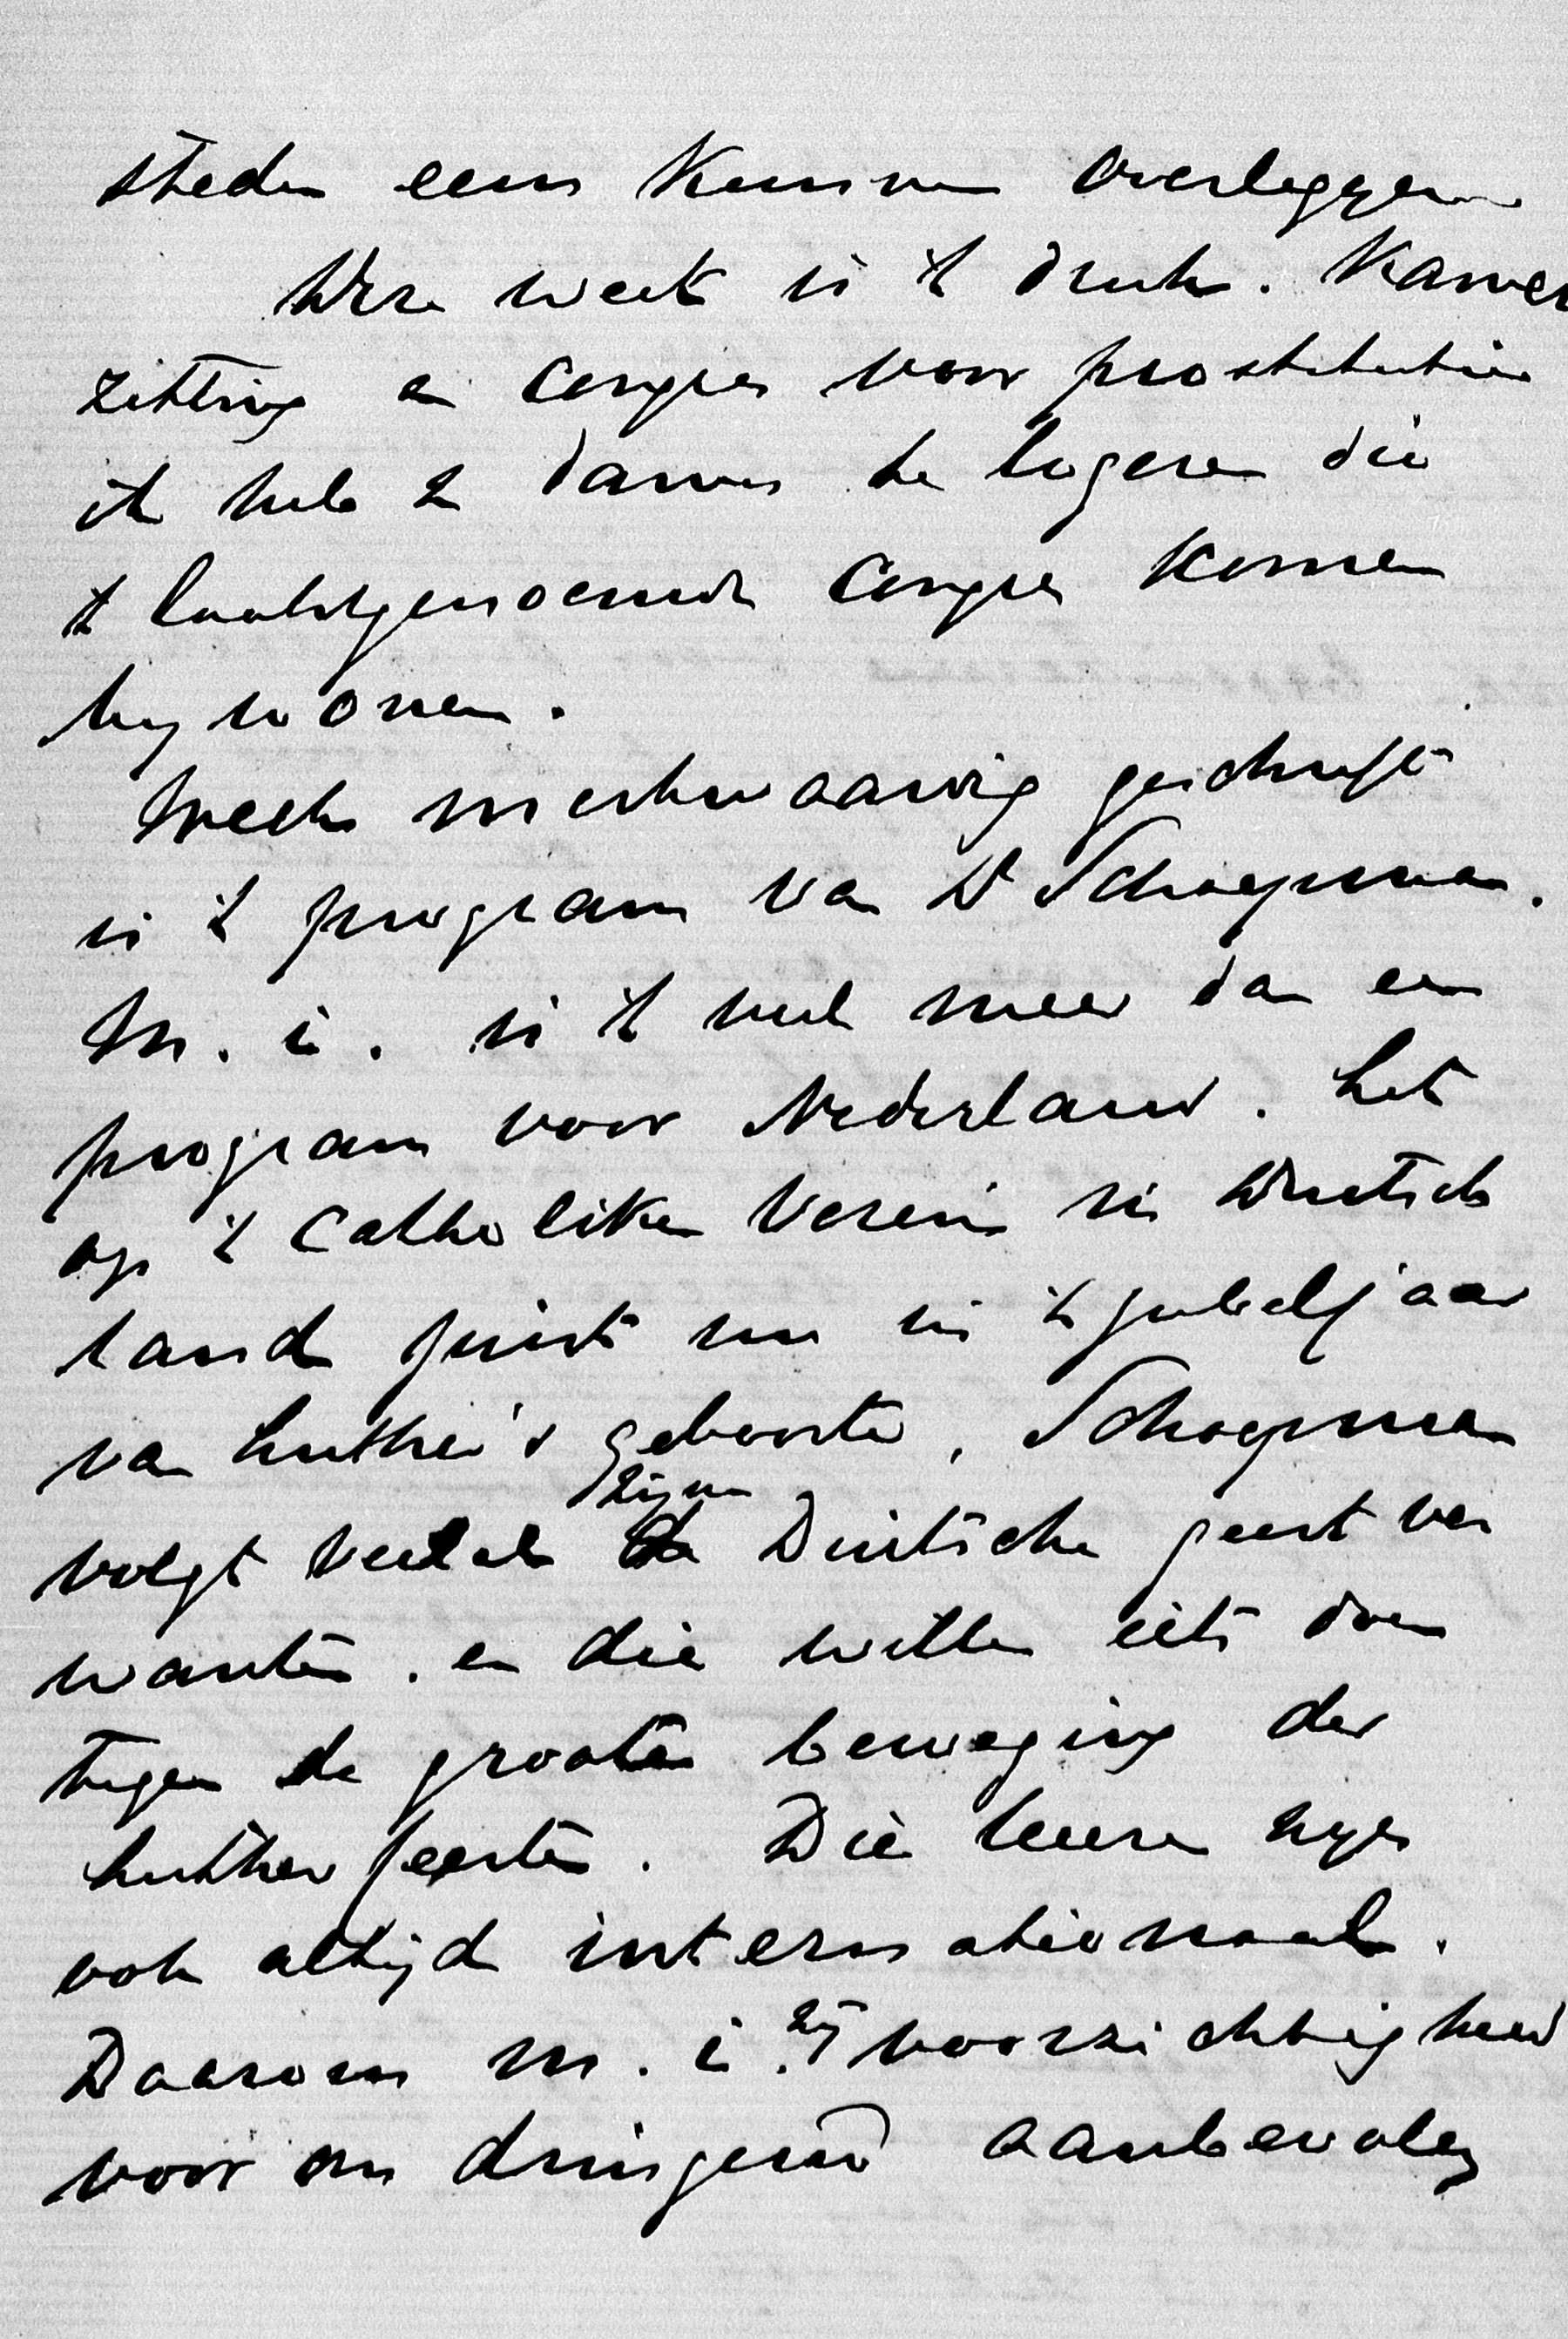 steden eens kunnen overleggen
Deze week is 't druk. Kamer
zitting en Congres voor prostitutie
ik heb 2 dames te logeren die
't laatstgenoemde Congres komen
bywonen.
Welk merkwaardig geschrift
is 't program van Dr Schaepman.
M. i. is 't veel meer dan een
program voor Nederland. Let
op 't Catholiken Verein in Duitsch
land juist nu in 't jubeljaar
van Luther's geboorte, Schaepman
volgt veelal zijne Duitsche geest ver
wanten. en die willen iets doen
tegen de groote beweging der
Luther feesten. Die leeren
ook altijd internationaal.
Daarom m. i. zij voorzichtigheid
voor ons dringend aanbevolen